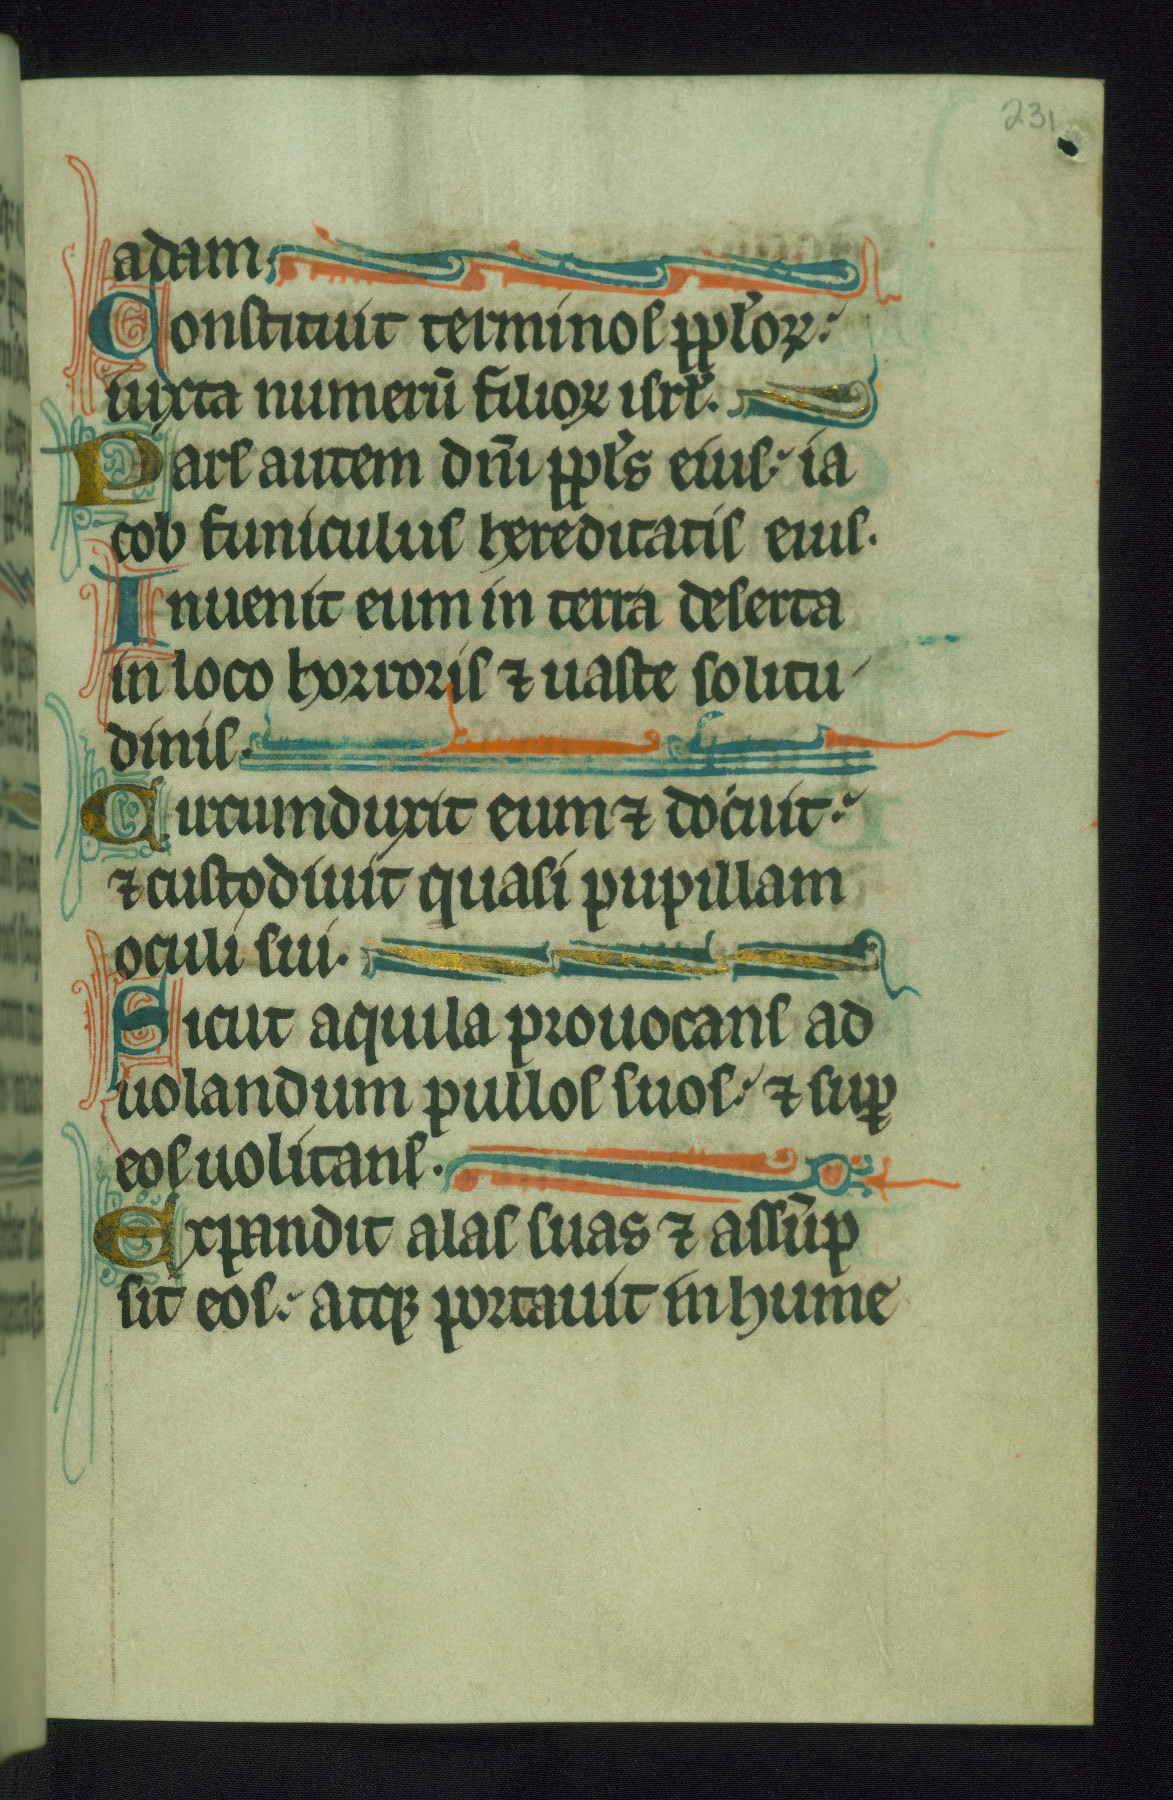 231
adam.
Constituit terminos pplͦoꝝ:
iuxta numerū filioꝝ isrl̄.
Pars autem dn̄i ppl̄s eius: ia
cob funiculus hereditatis eius.
Inuenit eum in terra deserta
in loco horroris ⁊ uaste solitu
dinis.
Circumduxit eum ⁊ docuit:
⁊ custodiuit quasi pupillam
oculi sui.
Sicut aquila prouocans ad
uolandum pullos suos: ⁊ suꝑ
eos uolitans.
Expandit alas suas ⁊ assūp
sit eos: atqꝫ portauit in hume